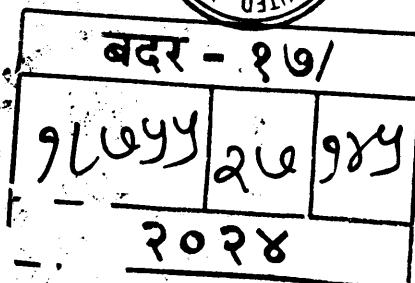 UTED
बदर - १७/
१८७५५ २७ १४५
२०२४